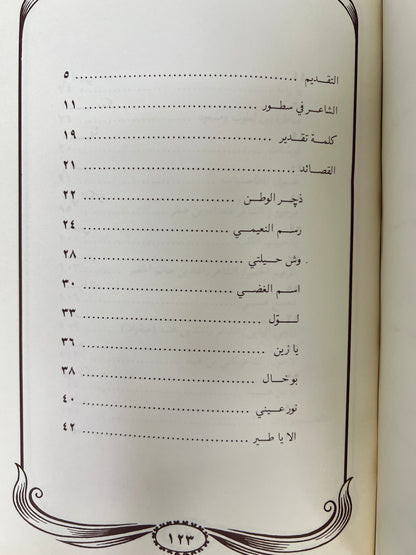 التقديم ........................................ ٥
الشاعر في سطور ........................................ ١١
كلمة تقدير ........................................ ١٩
القصائد ........................................ ٢١
ذچر الوطن ........................................ ٢٢
رسم النعيمي ........................................ ٢٤
وش حيلتي ........................................ ٢٨
اسم الغضي ........................................ ٣٠
لوّل ........................................ ٣٣
يا زين ........................................ ٣٦
بو خال ........................................ ٣٨
نور عيني ........................................ ٤٠
الا يا طير ........................................ ٤٢
١٢٣